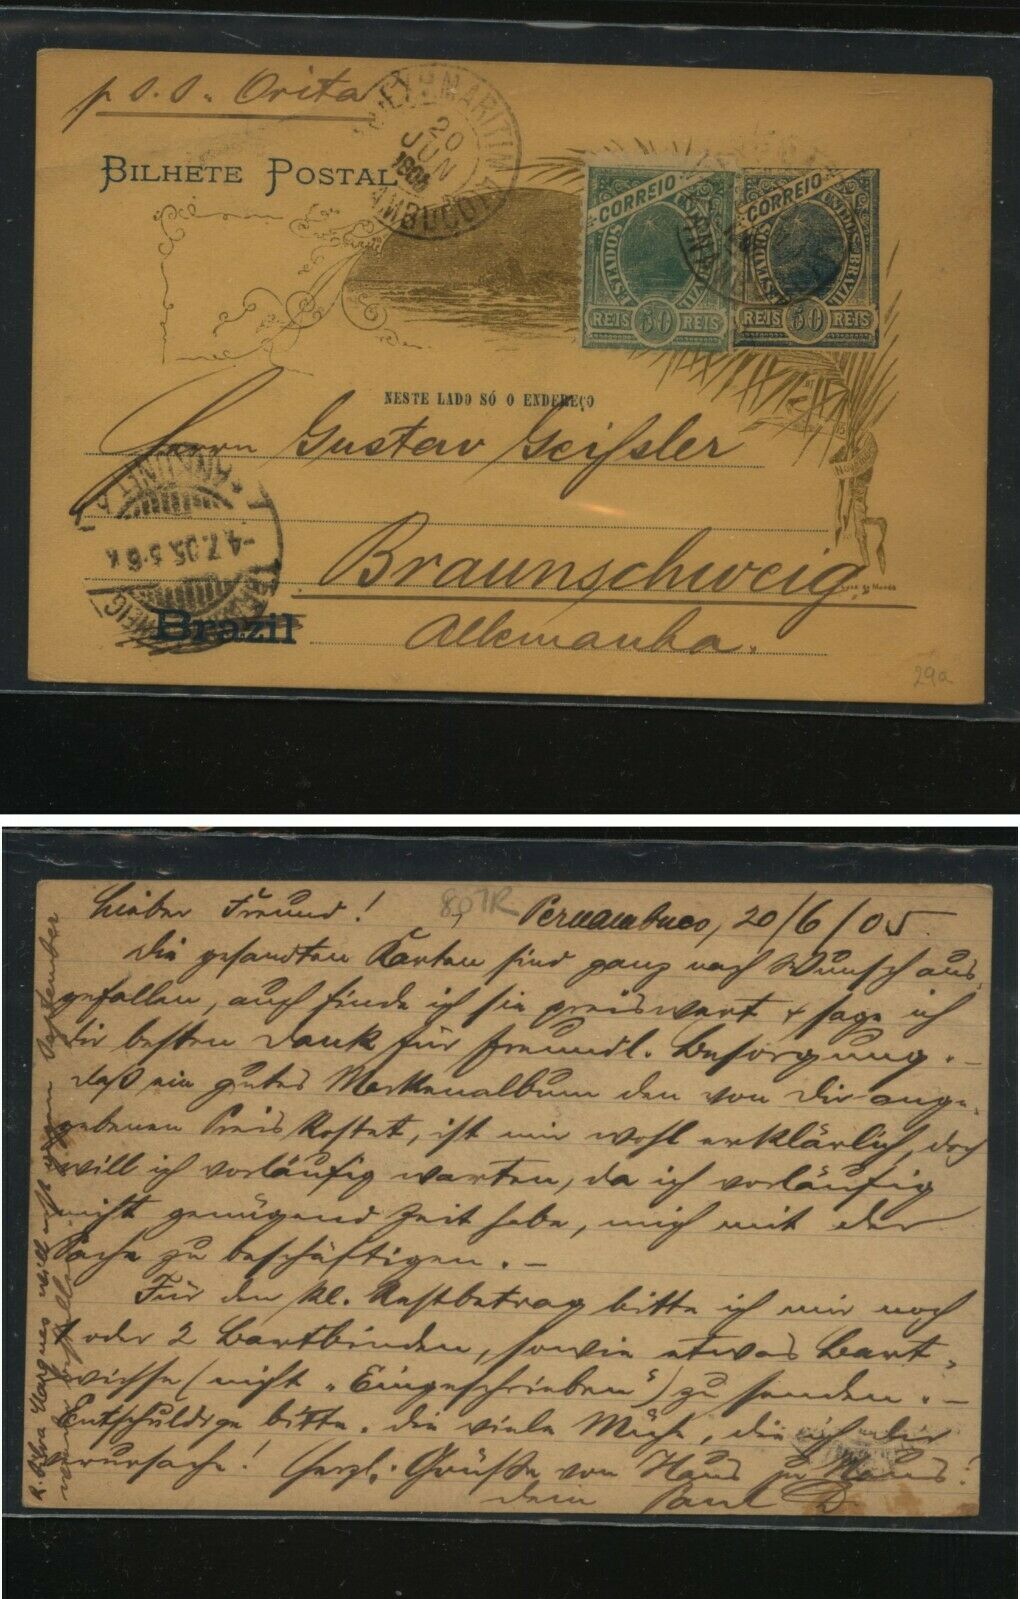 p S.S. Orita
MARITIM
20
JUN
BILHETE POSTAL
CORREIO
ESTADOS
REIS 50 REIS
CORREIO
ESTADOS
BRAZIL
REIS 50 REIS
NESTE LADO SÓ O ENDEREÇO
Herrn Gustav Geißler
Braunschweig
Allemanha.
-4.7.05.5-6
Brazil
29a
Lieber Freund! Pernambuco, 20/6/05.
Die gesandten Karten sind ganz nach Wunsch aus-
gefallen, auch finde ich sie preiswert & sage ich
Dir besten Dank für freundl. Besorgung. –
Daß ein gutes Markenalbum den von Dir ange-
gebenen Preis kostet, ist mir wohl erklärlich, doch
will ich vorläufig warten, da ich vorläufig
nicht genügend Zeit habe, mich mit der
Sache zu beschäftigen. –
Für den kl. Restbetrag bitte ich mir noch
1 oder 2 Bartbinden, sowie etwas Bart-
wichse (nicht „Eingeschrieben“) zu senden. –
Entschuldige bitte die viele Mühe, die ich Dir
verursache! Herzl. Grüße von Haus zu Haus!
Dein Paul D.
R. Silva Marques will erst gegen September